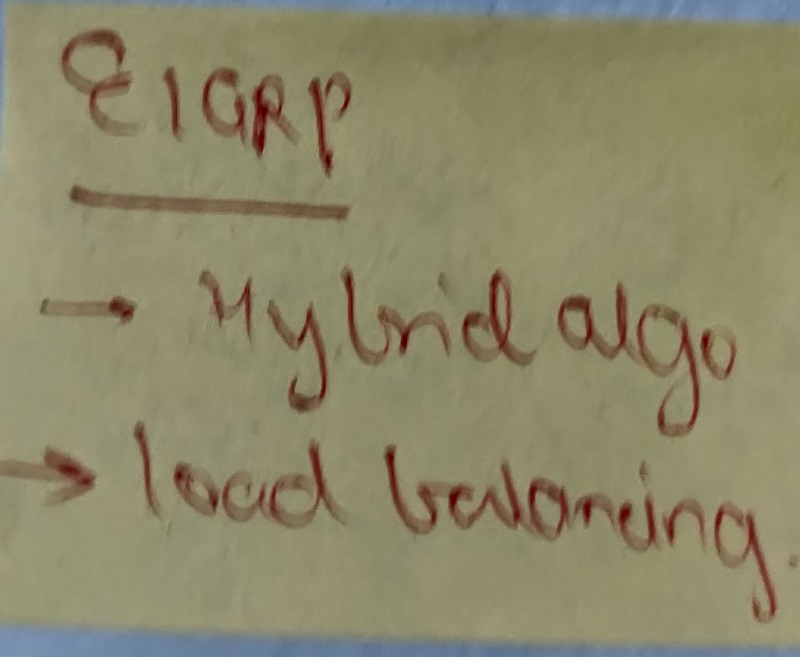 EIGRP
→ Hybrid algo
→ load balancing.